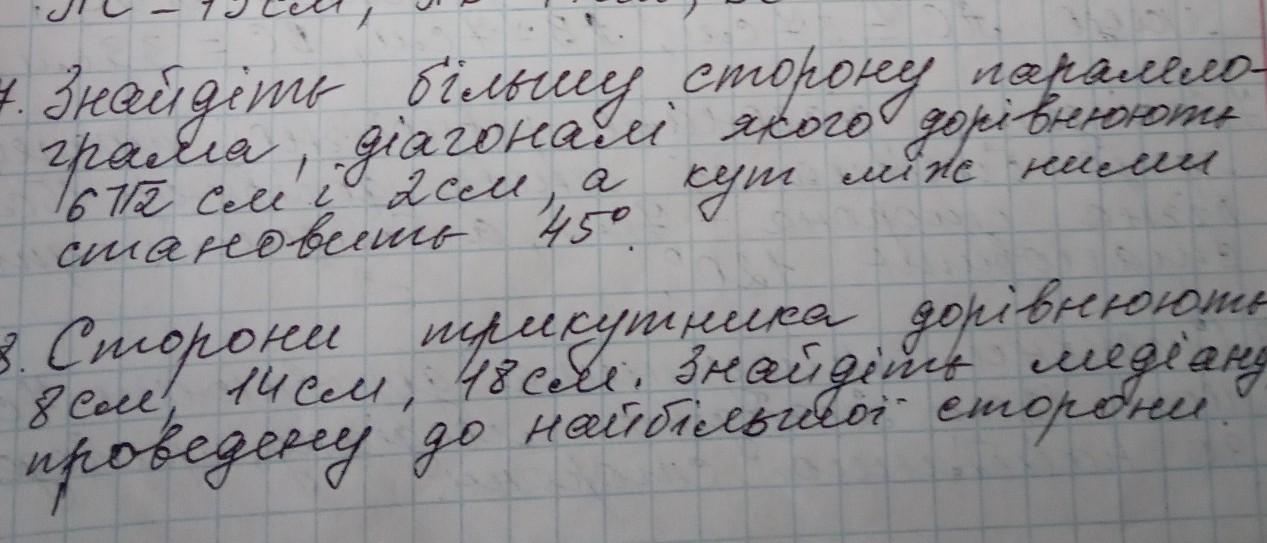 7. Знайдіть більшу сторону паралело-
грама, діагоналі якого дорівнюють
6√2 см і 2 см, а кут між ними
становить 45°.
8. Сторони трикутника дорівнюють
8 см, 14 см, 18 см. Знайдіть медіану
проведену до найбільшої сторони.